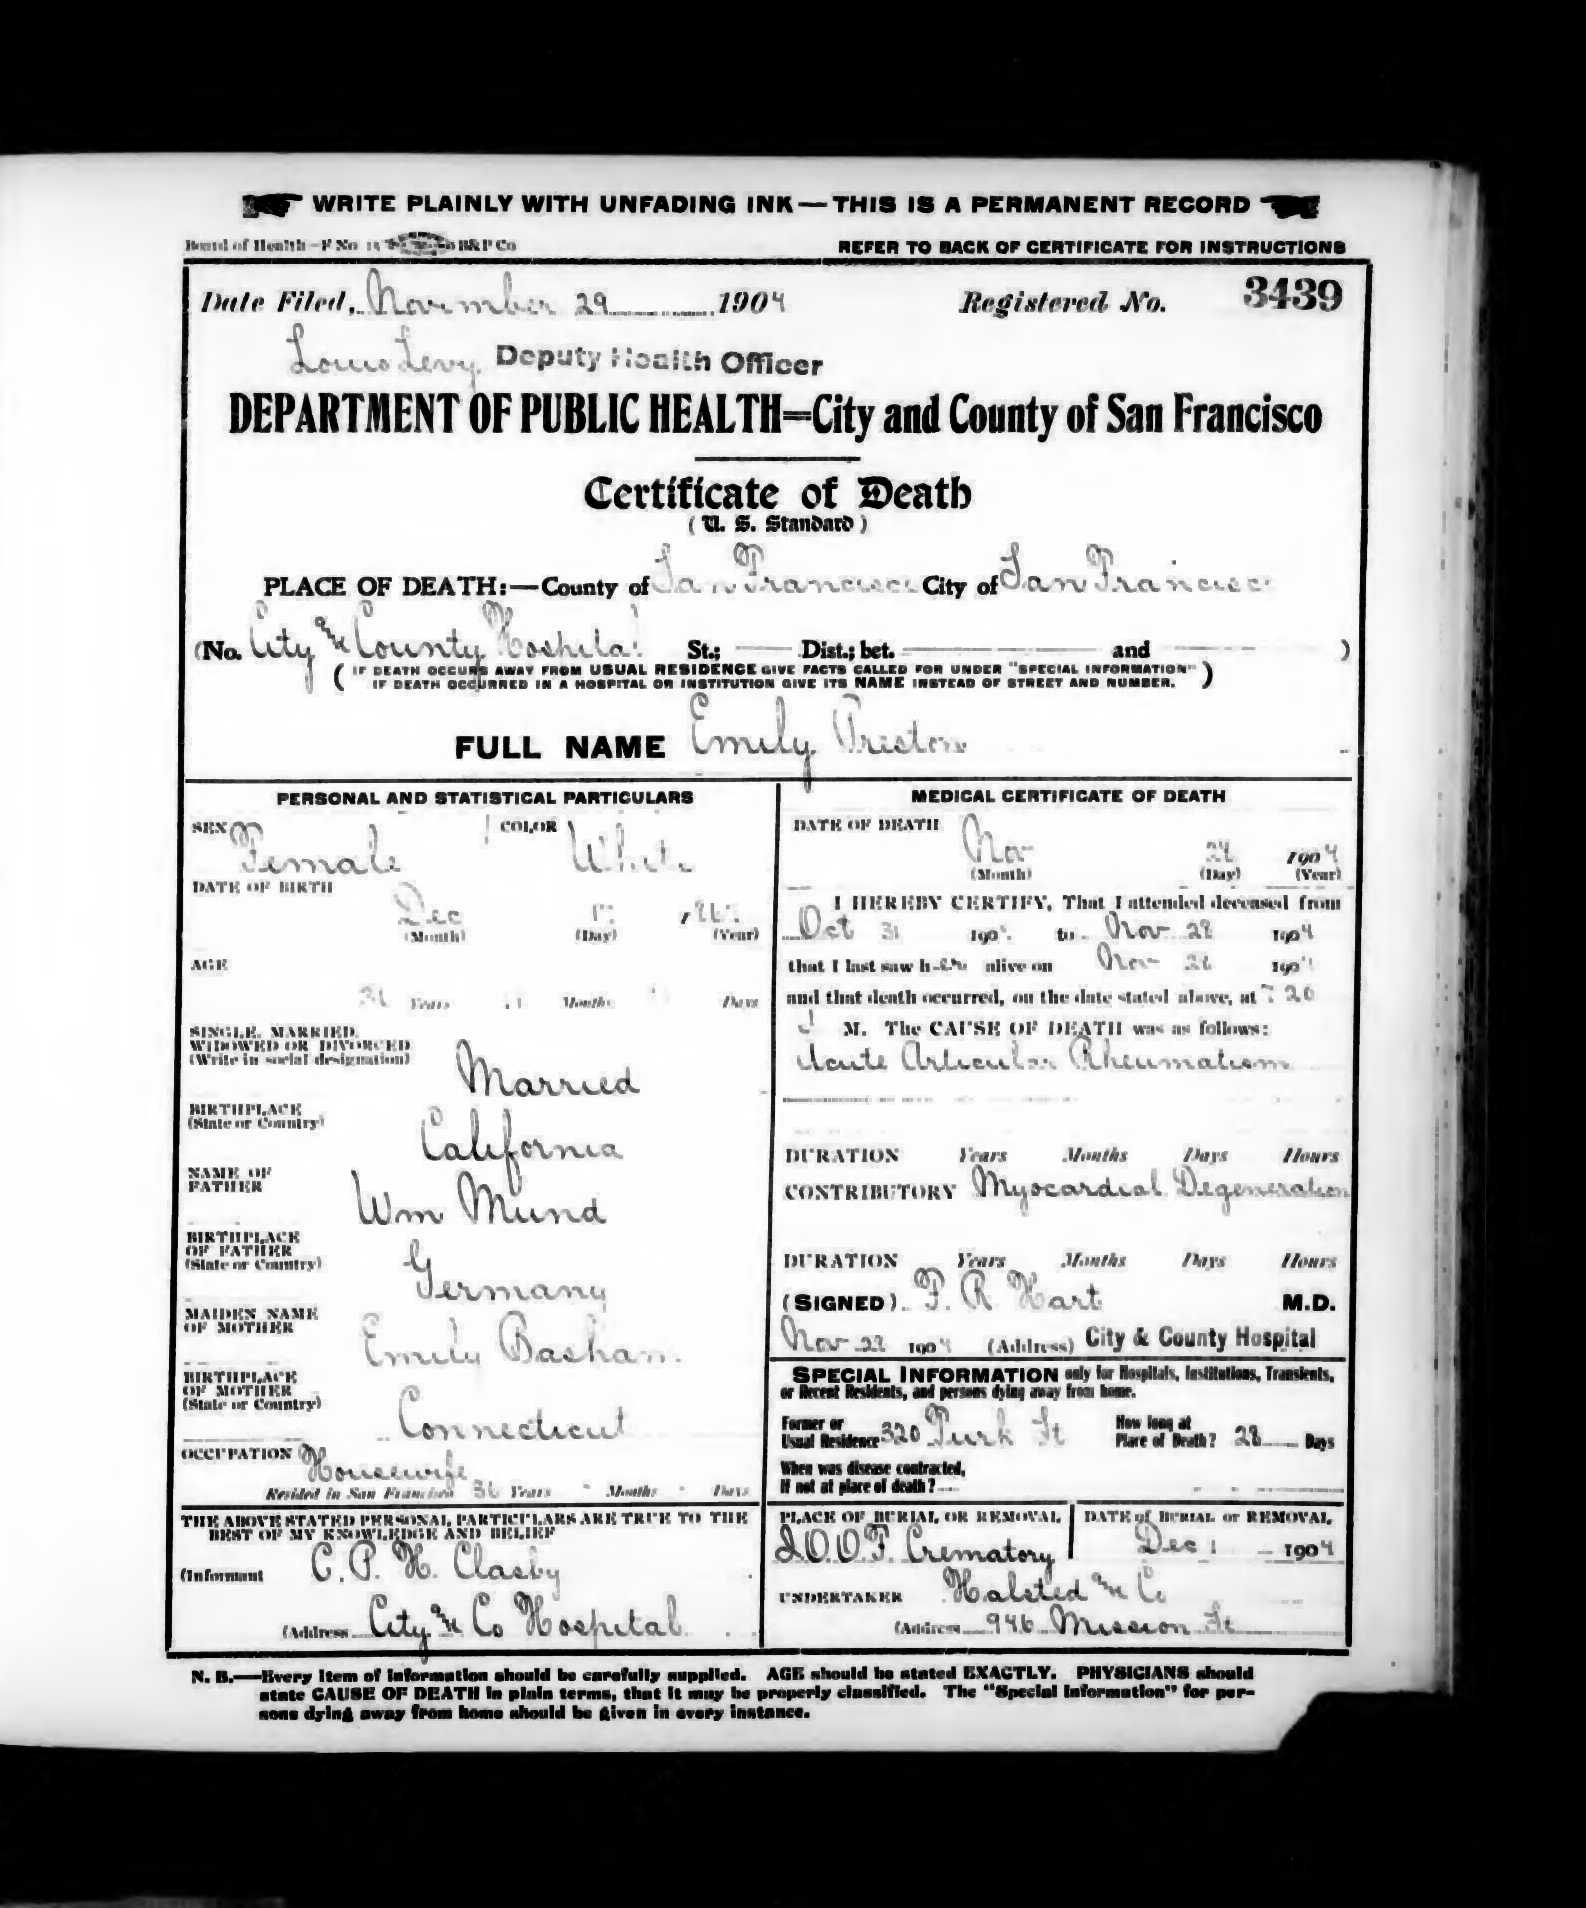 WRITE PLAINLY WITH UNFADING INK — THIS IS A PERMANENT RECORD
Board of Health—F No B&P Co
REFER TO BACK OF CERTIFICATE FOR INSTRUCTIONS
Date Filed, November 29 1904 Registered No. 3439
Louis Levy, Deputy Health Officer
DEPARTMENT OF PUBLIC HEALTH=City and County of San Francisco
Certificate of Death
(U. S. Standard)
PLACE OF DEATH:—County of San Francisco City of San Francisco
(No. City and County Hospital St.; Dist.; bet. and )
(IF DEATH OCCURS AWAY FROM USUAL RESIDENCE GIVE FACTS CALLED FOR UNDER "SPECIAL INFORMATION"
IF DEATH OCCURRED IN A HOSPITAL OR INSTITUTION GIVE ITS NAME INSTEAD OF STREET AND NUMBER.)
FULL NAME Emily Preston
PERSONAL AND STATISTICAL PARTICULARS
SEX Female COLOR White
DATE OF BIRTH
Dec
(Month) (Day) (Year)
AGE
Years Months Days
SINGLE, MARRIED,
WIDOWED OR DIVORCED
(Write in social designation)
Married
BIRTHPLACE
(State or Country)
California
NAME OF
FATHER
Wm Mund
BIRTHPLACE
OF FATHER
(State or Country)
Germany
MAIDEN NAME
OF MOTHER
Emily Basham
BIRTHPLACE
OF MOTHER
(State or Country)
Connecticut
OCCUPATION Housewife
Resided in San Francisco 36 Years Months Days
THE ABOVE STATED PERSONAL PARTICULARS ARE TRUE TO THE
BEST OF MY KNOWLEDGE AND BELIEF
(Informant C. P. H. Clasby
(Address City and Co Hospital
MEDICAL CERTIFICATE OF DEATH
DATE OF DEATH
Nov 28 1904
(Month) (Day) (Year)
I HEREBY CERTIFY, That I attended deceased from
Oct 31 190 to Nov 28 1904
that I last saw her alive on Nov 28 190
and that death occurred, on the date stated above, at 20
M. The CAUSE OF DEATH was as follows:
Acute Articular Rheumatism
DURATION Years Months Days Hours
CONTRIBUTORY Myocardial Degeneration
DURATION Years Months Days Hours
(SIGNED) F. R. Hart M.D.
Nov 28 1904 (Address) City & County Hospital
SPECIAL INFORMATION only for Hospitals, Institutions, Transients,
or Recent Residents, and persons dying away from home.
Former or
Usual Residence 320 Turk St
How long at
Place of Death? 28 Days
When was disease contracted,
If not at place of death?
PLACE OF BURIAL OR REMOVAL
I.O.O.F. Crematory
DATE of BURIAL or REMOVAL
Dec 1 1904
UNDERTAKER Halsted and Co
(Address 946 Mission St
N. B.—Every item of information should be carefully supplied. AGE should be stated EXACTLY. PHYSICIANS should
state CAUSE OF DEATH in plain terms, that it may be properly classified. The "Special Information" for per-
sons dying away from home should be given in every instance.